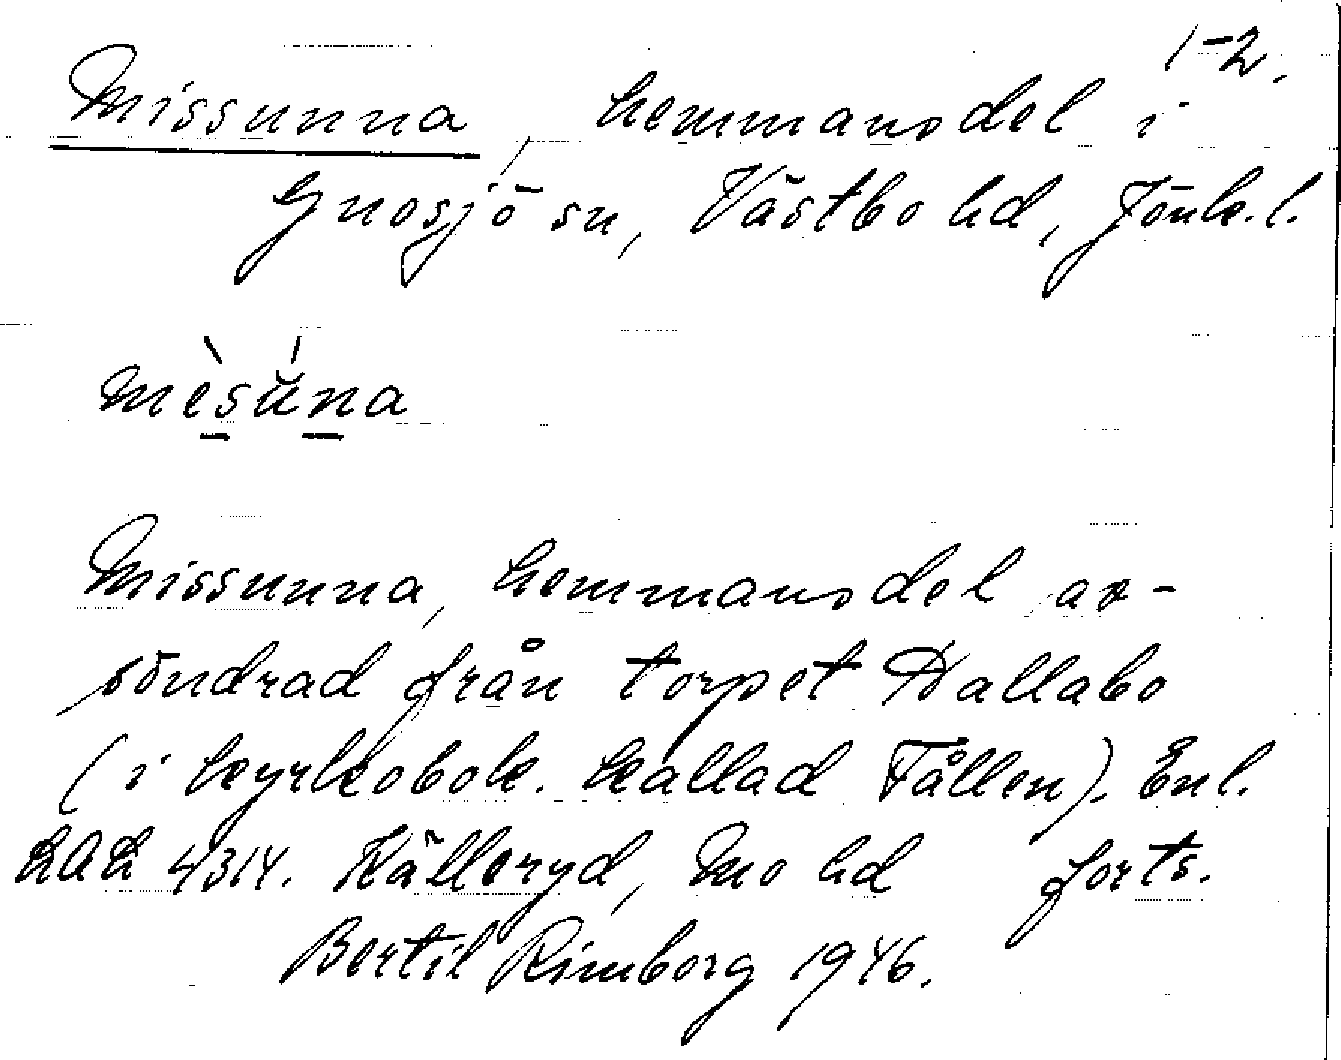 1-2.
Missunna, hemmansdel i
Gnosjö sn, Västbo hd, Jönk. l.
mèsúna
Missunna, hemmansdel av-
söndrad från torpet Dallabo
(i kyrkobok. kallad Fållen). Enl.
4314. Källeryd, Mo hd forts.
Bertil Rimborg 1946.